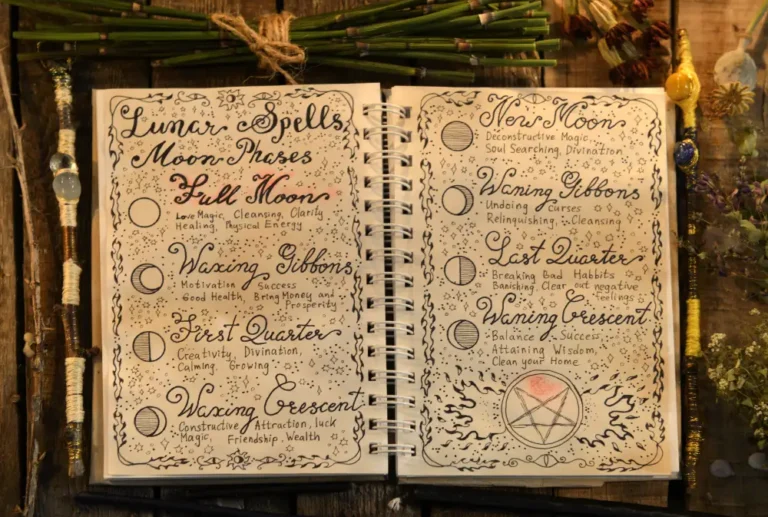 Lunar Spells
Moon Phases
Full Moon
Love Magic, Cleansing, Clarity
Healing, Physical Energy
Waxing Gibbons
Motivation Success
Good Health, Bring Money and
Prosperity
First Quarter
Creativity, Divination,
Calming, Growing
Waxing Crescent
Constructive Attraction, luck
Magic, Friendship, Wealth
New Moon
Deconstructive Magic,
Soul Searching, Divination
Waning Gibbons
Undoing Curses
Relinguishing, Cleansing
Last Quarter
Breaking Bad Habbits
Banishing, Clear out negative
feelings
Waning Crescent
Balance, Success
Attaining Wisdom,
Clean your Home